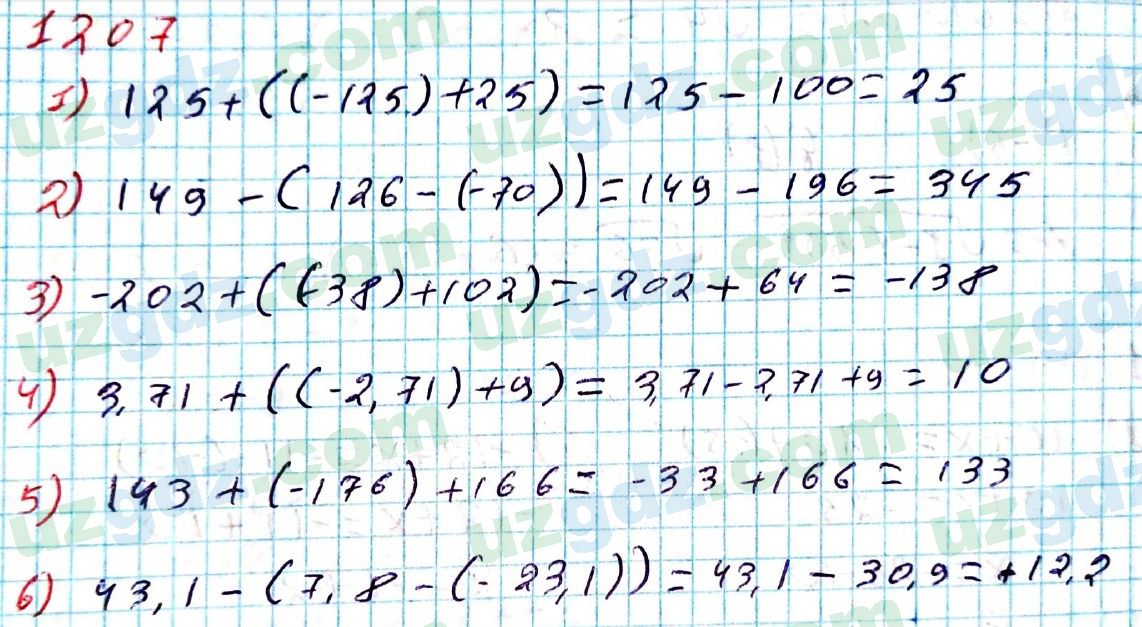 1207
1) 125+((-125)+25)=125-100=25
2) 149-(126-(-70))=149-196=345
3) -202+((-38)+102)=-202+64=-138
4) 3,71+((-2,71)+9)=3,71-2,71+9=10
5) 143+(-176)+166=-33+166=133
6) 43,1-(7,8-(-23,1))=43,1-30,9=+12,2